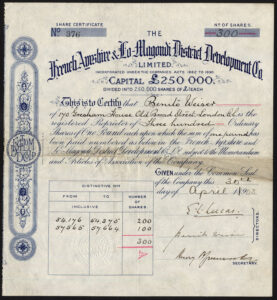 SHARE CERTIFICATE
Nº 376
THE
Nº OF SHARES.
300
French Ayrshire & Lo-Magondi District Development Co.
LIMITED.
INCORPORATED UNDER THE COMPANIES ACTS 1862 TO 1890
CAPITAL £250 000.
DIVIDED INTO 250,000 SHARES OF £1 EACH
This is to Certify that Benito Weiser
of 170 Gresham House Old Broad Street London E.C. is the
registered Proprietor of Three hundred Ordinary
Shares of One Pound each upon which the sum of one pound has
been paid
French Ayrshire and
Lo-Magondi District Development Co. Ld subject to the Memorandum
and Articles of Association of the Company.
GIVEN under the Common Seal
of the Company this
of April
DISTINCTIVE Nos
FROM TO
INCLUSIVE
NUMBER
OF
SHARES
54,176 54,375 200
57,565 57,664 100
300
SECRETARY.